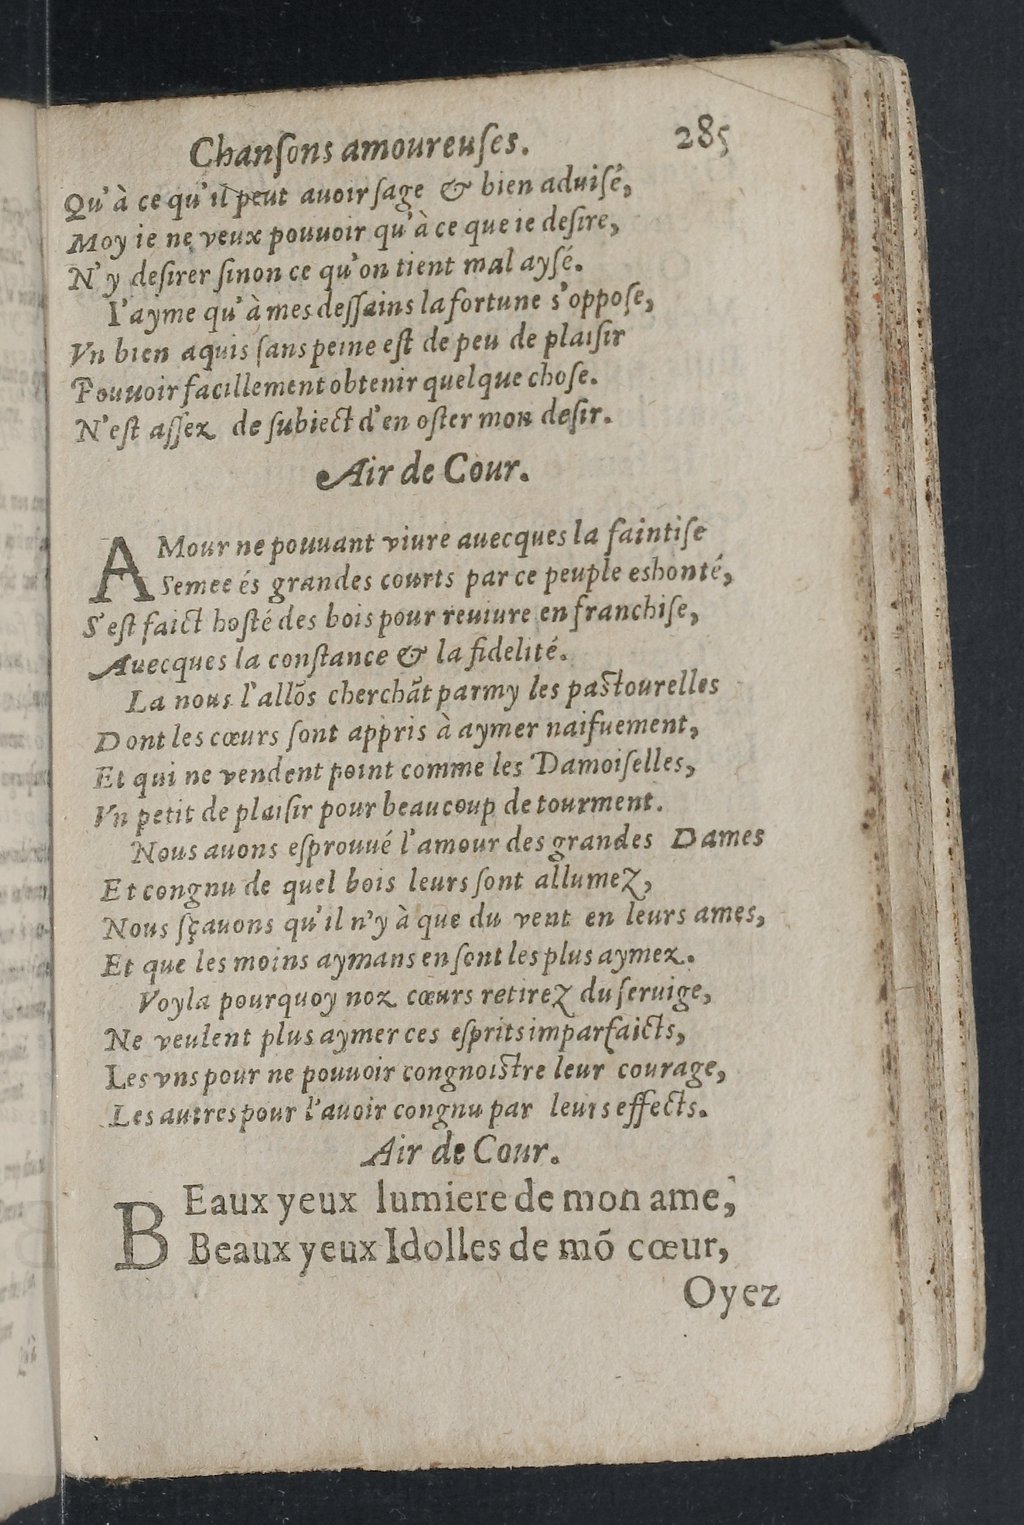 Chanſons amoureuſes. 285
Qu'à ce qu'il peut auoir ſage & bien aduiſé,
Moy ie ne veux pouuoir qu'à ce que ie deſire,
N'y deſirer ſinon ce qu'on tient mal ayſé.
I'ayme qu'à mes deſſains la fortune s'oppoſe,
Vn bien aquis ſans peine eſt de peu de plaiſir
Pouuoir facillement obtenir quelque choſe.
N'eſt aſſez de ſubiect d'en oſter mon deſir.
Air de Cour.
AMour ne pouuant viure auecques la faintiſe
Semee és grandes courts par ce peuple eshonté,
S'eſt faict hoſté des bois pour reuiure en franchiſe,
Auecques la conſtance & la fidelité.
La nous l'allõs cherchãt parmy les paſtourelles
Dont les cœurs ſont appris à aymer naifuement,
Et qui ne vendent point comme les Damoiſelles,
Vn petit de plaiſir pour beaucoup de tourment.
Nous auons eſprouué l'amour des grandes Dames
Et congnu de quel bois leurs ſont allumez,
Nous ſçauons qu'il n'y à que du vent en leurs ames,
Et que les moins aymans en ſont les plus aymez.
Voyla pourquoy noz cœurs retirez du ſeruige,
Ne veulent plus aymer ces eſprits imparfaicts,
Les vns pour ne pouuoir congnoiſtre leur courage,
Les autres pour l'auoir congnu par leurs effects.
Air de Cour.
BEaux yeux lumiere de mon ame,
Beaux yeux Idolles de mõ cœur,
Oyez